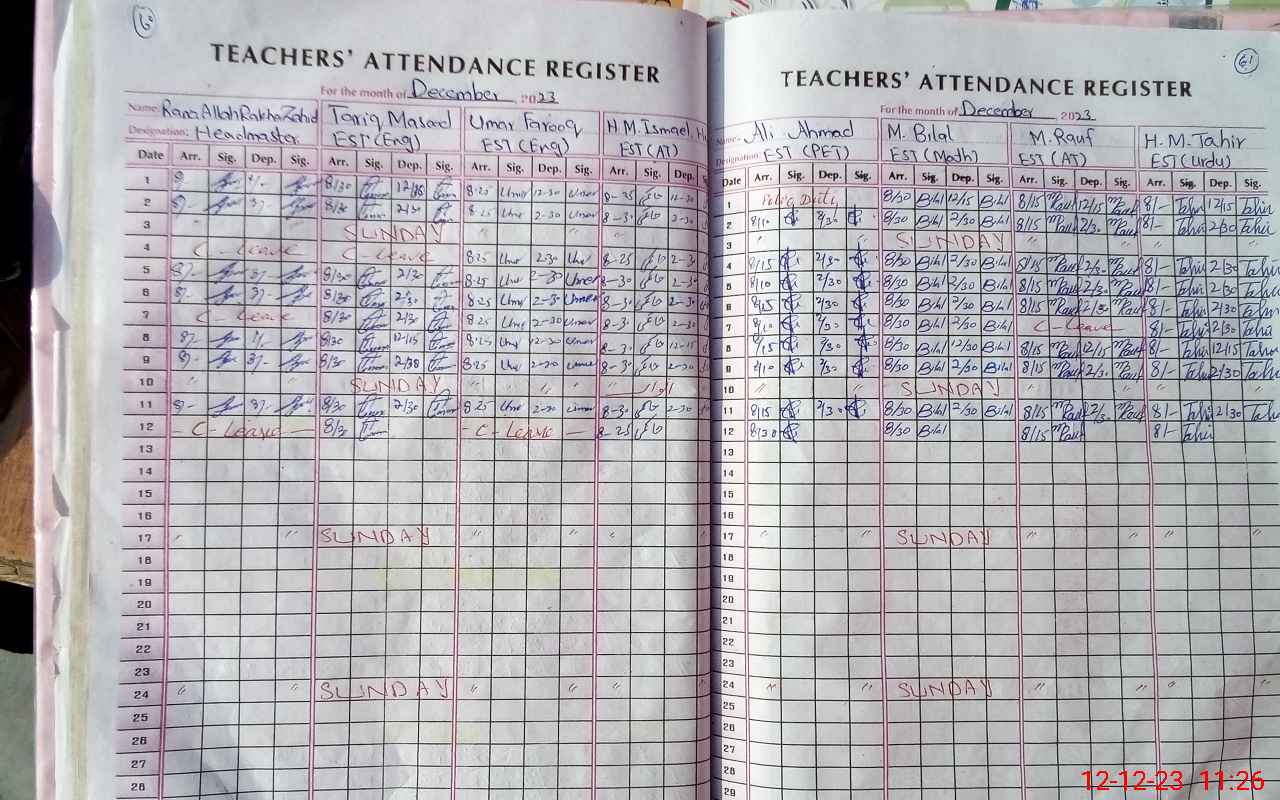 60
TEACHERS' ATTENDANCE REGISTER
For the month of December 2023
Name Rana Allah Rakha Zahid Tariq Masood Umar Farooq H.M. Ismael
Designation: Headmaster EST (Eng) EST (Eng) EST (AT)
Date Arr. Sig. Dep. Sig. Arr. Sig. Dep. Sig. Arr. Sig. Dep. Sig. Arr. Sig. Dep.
1 8/30 8.25 Umar 12-30 Umar 8-25 12-30
2 8/30 2/30 8.25 Umar 2-30 Umar 8-3. 2-30
3 SUNDAY " "
4 C-Leave C-Leave 8.25 Umar 2.30 Umar 8-25 2-3.
5 8/30 8.25 Umar 2-30 Umar 8-30 2-3.
6 8/30 2/30 8.25 Umar 2-30 Umar 8-30 2-30
7 C-Leave 8/30 2/30 8.25 Umar 2-30 Umar 8-3. 2-30
8 8/30 12/15 8.25 Umar 12-30 Umar 8-3. 12-15
9 8/30 8.25 Umar 2-30 Umar 8-3. 2-30
10 " " SUNDAY " " " "
11 8/30 2/30 8.25 Umar 2-30 Umar 8-30 2-30
12 - C-Leave - 8/30 - C-Leave - 8-25
13
14
15
16
17 " " SUNDAY " " "
18
19
20
21
22
23
24 " " SUNDAY " " "
25
26
27
28
61
TEACHERS' ATTENDANCE REGISTER
For the month of December 2023
Name Ali Ahmad M. Bilal M. Rauf H. M. Tahir
Designation EST (PET) EST (Math) EST (AT) EST (Urdu)
Date Arr. Sig. Dep. Sig. Arr. Sig. Dep. Sig. Arr. Sig. Dep. Sig. Arr. Sig. Dep. Sig.
1 8/30 Bilal 12/15 Bilal 8/15 MRauf 12/15 MRauf 8/- Tahir 12/15 Tahir
2 8/10 2/30 8/30 Bilal 2/30 Bilal 8/15 MRauf 2/30 MRauf 8/- Tahir 2/30 Tahir
3 " " SUNDAY " " " "
4 8/15 2/30 8/30 Bilal 2/30 Bilal 8/15 MRauf 2/30 MRauf 8/- Tahir 2/30 Tahir
5 8/10 2/30 8/30 Bilal 2/30 Bilal 8/15 MRauf 2/30 MRauf 8/- Tahir 2/30 Tahir
6 8/25 2/30 8/30 Bilal 2/30 Bilal 8/15 MRauf 2/30 MRauf 8/- Tahir 2/30 Tahir
7 8/10 2/30 8/30 Bilal 2/30 Bilal C-Leave 8/- Tahir 2/30 Tahir
8 8/15 2/30 8/30 Bilal 12/30 Bilal 8/15 MRauf 12/15 MRauf 8/- Tahir 12/15 Tahir
9 8/10 2/30 8/30 Bilal 2/30 Bilal 8/15 MRauf 2/30 MRauf 8/- Tahir 2/30 Tahir
10 " " SUNDAY " " " "
11 8/15 2/30 8/30 Bilal 2/30 Bilal 8/15 MRauf 2/30 MRauf 8/- Tahir 2/30 Tahir
12 8/30 8/30 Bilal 8/15 MRauf 8/- Tahir
13
14
15
16
17 " " SUNDAY " " " "
18
19
20
21
22
23
24 " " SUNDAY " " " "
25
26
27
28
29
12-12-23 11:26